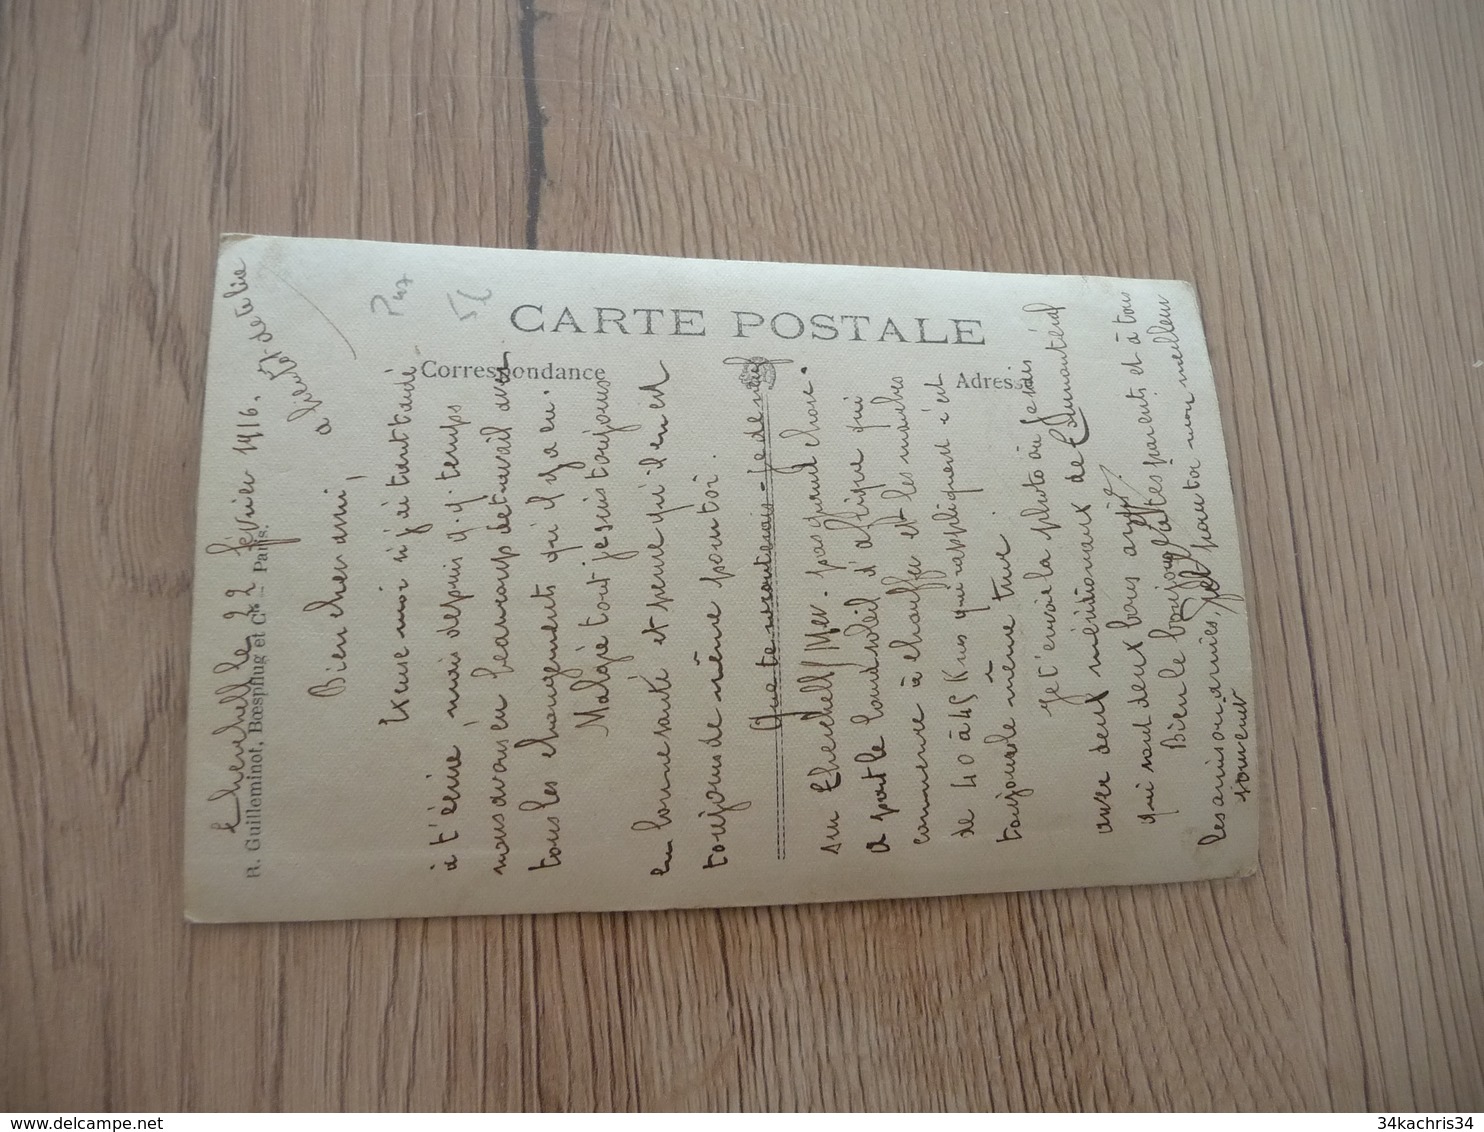 Cherchell le 22 février 1916.
Bien cher ami,
Excuse moi si j'ai tant tardé
à t'écrire, mais depuis q.q. temps
nous avons eu beaucoup de travail avec
tous les changements qu'il y a eu.
Malgré tout je suis toujours
en bonne santé et pense qu'il en est
toujours de même pour toi.
Que te raconterais-je de neuf
sur Cherchell/Mer. pas grand chose.
A part le chaud soleil d'afrique qui
commence à chauffer et les marches
de 40 à 45 Kms qui rappliquent c'est
toujours le même truc.
Je t'envoie la photo où je suis
avec deux méridionaux de
qui sont deux bons
Bien le bonjour à tes parents et à tous
les amis ou amies, pour toi mon meilleur
souvenir
a bientôt de te lire
CARTE POSTALE
Correspondance
Adresse
R. Guilleminot, Bœspflug et Cie – Paris.
34kachris34